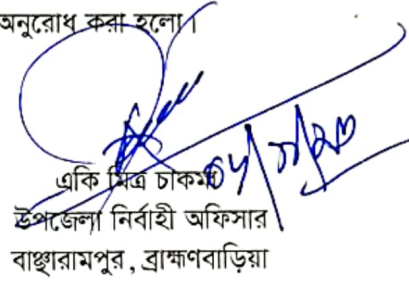 অনুরোধ করা হলো।
একি মিত্র চাকমা
উপজেলা নির্বাহী অফিসার
বাঞ্ছারামপুর, ব্রাহ্মণবাড়িয়া